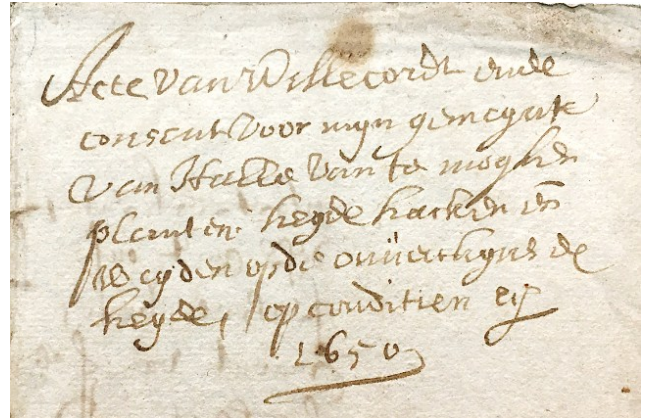 Acte van Willecordt ende
consent voor mijn gemeynte
van Halle van te moghen
planten heyde hacken en
weyden op de
heyde, op conditien etc
1650